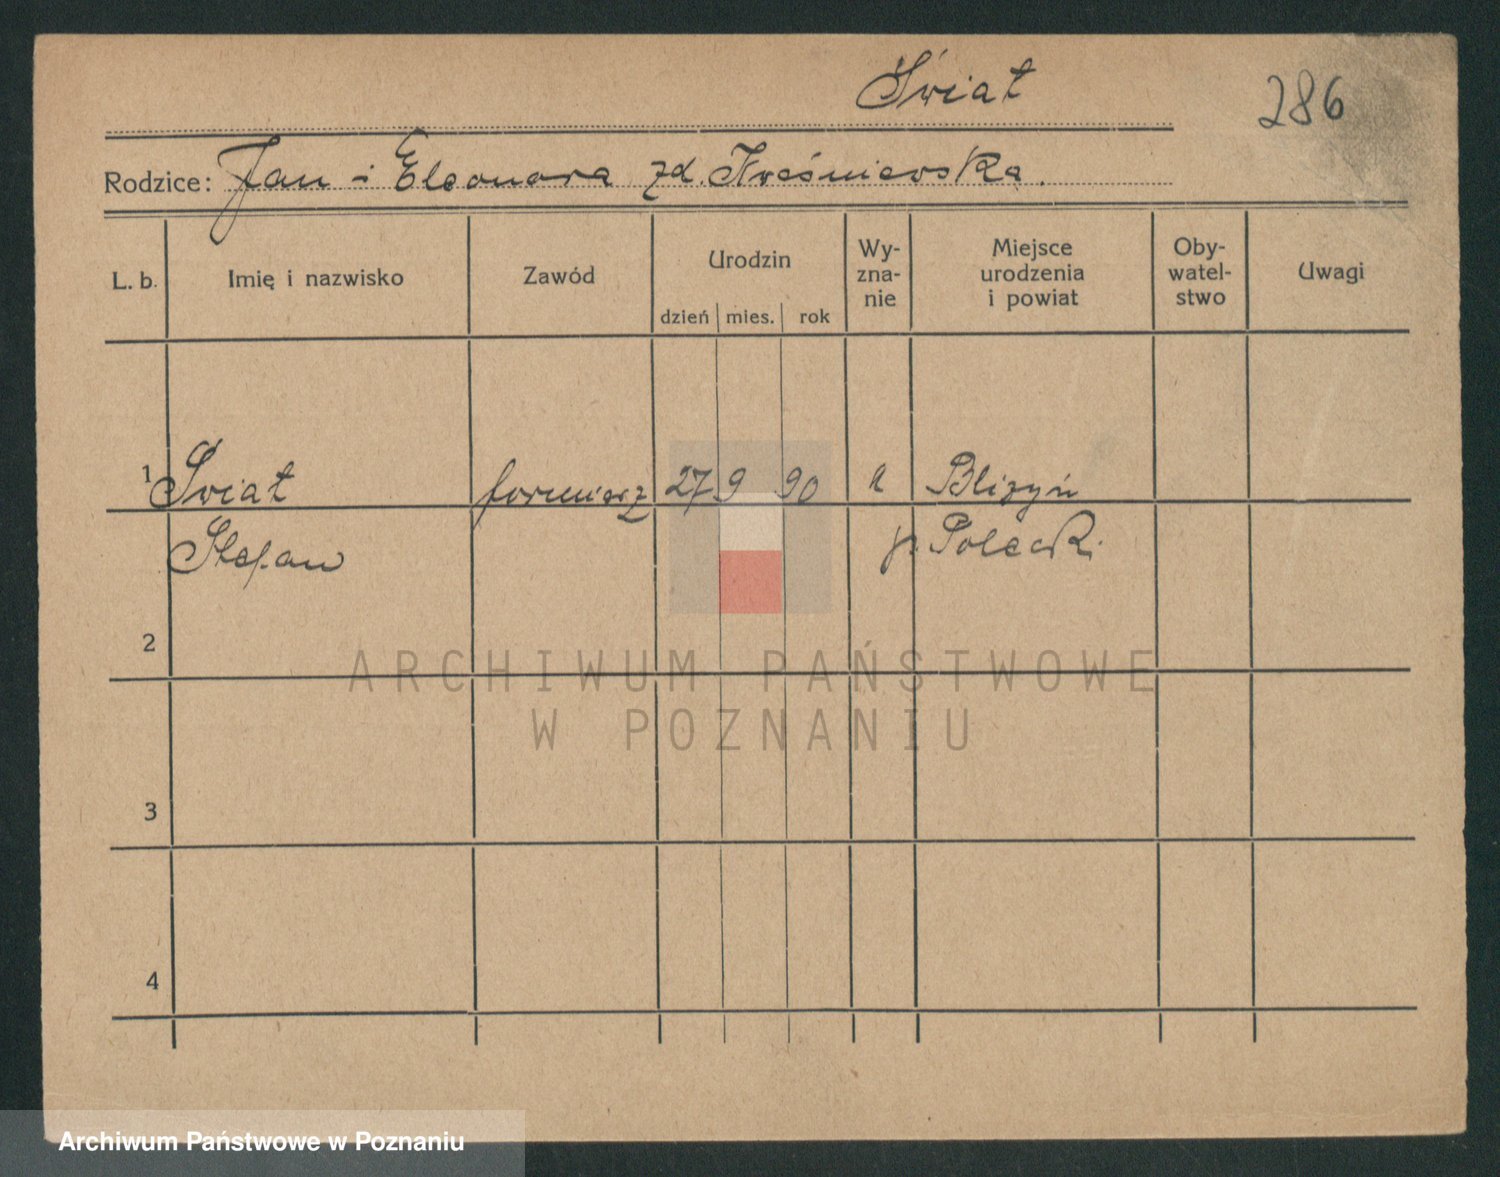 Świat
286
Rodzice: Jan i Eleonora zd. Kreśniewska.
L. b. Imię i nazwisko Zawód Urodzin Wy-zna-nie Miejsce urodzenia i powiat Oby-watel-stwo Uwagi
dzień mies. rok
1 Świat formierz 27 9 90 k Bliżyń
Stefan p.
2
3
4
ARCHIWUM PAŃSTWOWE
W POZNANIU
Archiwum Państwowe w Poznaniu